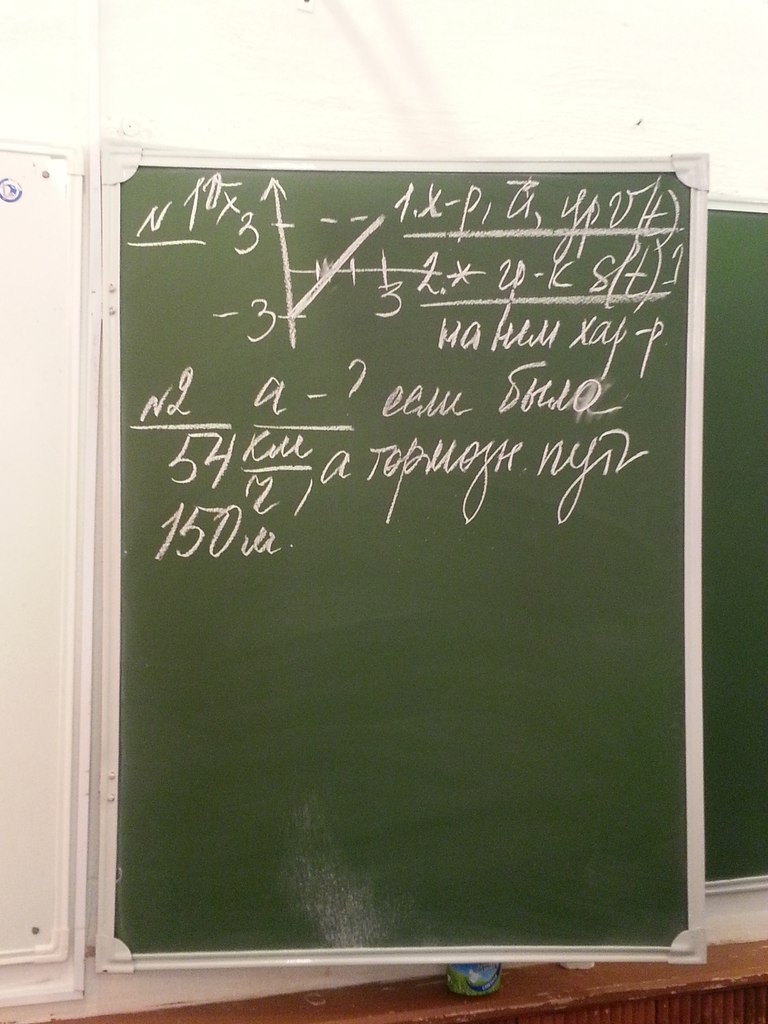 N1 Vx 3 1. х-р, a, ур V(t)
2.* гр-к s(t)-?
-3 3 на нем хар-р
N2 a-? если была
54 км/ч, а тормозн. путь
150м.